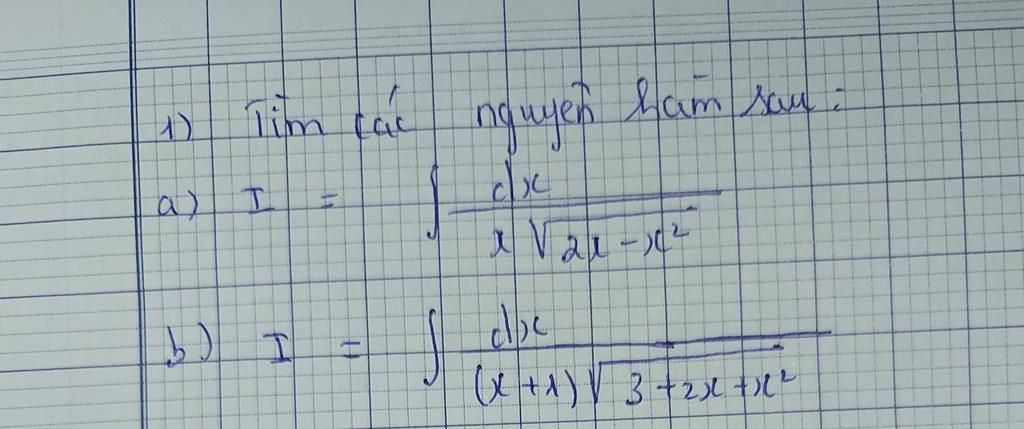 1) Tìm các nguyên hàm sau :
a) I = ∫ dx / x√(2x - x²)
b) I = ∫ dx / (x+1)√(3+2x+x²)